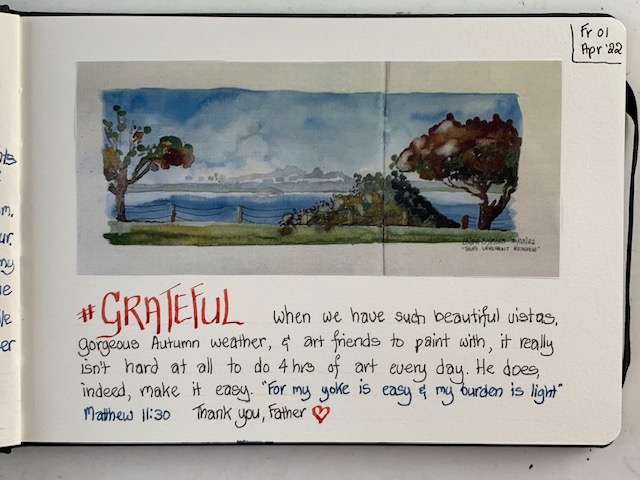 Fr 01
Apr '22
#GRATEFUL when we have such beautiful vistas,
gorgeous Autumn weather, & art friends to paint with, it really
isn't hard at all to do 4 hrs of art every day. He does,
indeed, make it easy. "For my yoke is easy & my burden is light"
Matthew 11:30 Thank you, Father ♡
my
er